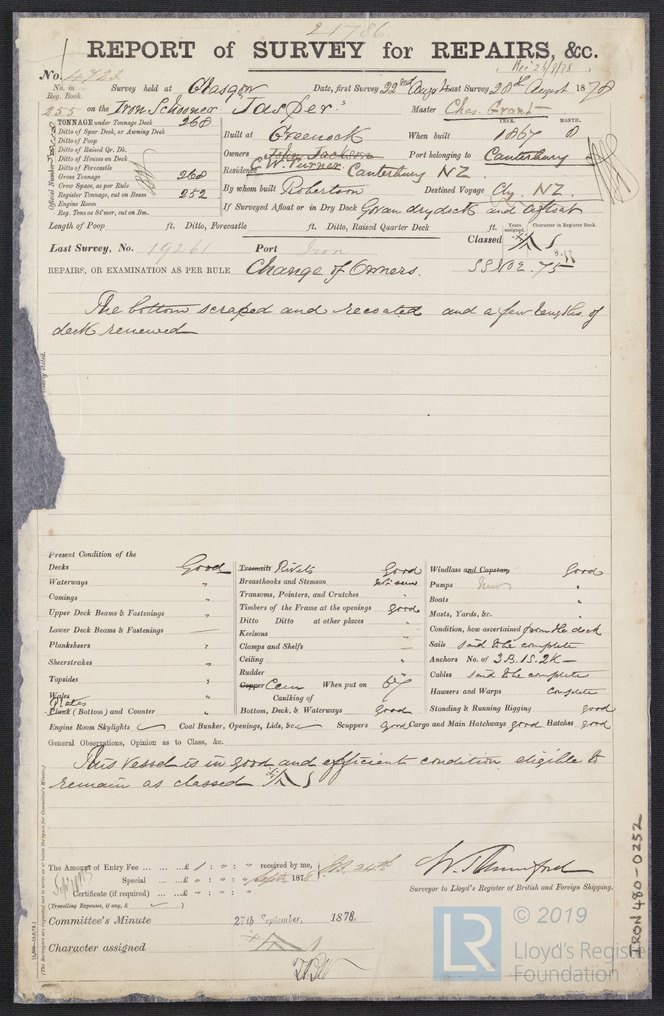 21786
REPORT of SURVEY for REPAIRS, &c.
No.
No. in Reg. Book. Survey held at Glasgow Date, first Survey 22nd Augt Last Survey 28th August 1878
255 on the Iron Schooner Jasper Master Chas. Grant
TONNAGE under Tonnage Deck 268
Ditto of Spar Deck, or Awning Deck
Ditto of Poop
Ditto of Raised Qr. Dk.
Ditto of Houses on Deck
Ditto of Forecastle
Gross Tonnage 268
Crew Space, as per Rule
Register Tonnage, cut on Beam 252
Engine Room
Reg. Tons as St'mer, cut on Bm.
Official Number
Built at Greenock When built YEAR. 1867 MONTH. 8
Owners John Jackson Port belonging to Canterbury
Residence E. W. Turner. Canterbury NZ
By whom built Robertson Destined Voyage Cby. NZ.
If Surveyed Afloat or in Dry Dock Govan dry dock and afloat
Length of Poop ft. Ditto, Forecastle ft. Ditto, Raised Quarter Deck ft.
Years assigned. Character in Register Book.
Last Survey, No. 19261 Port Iron Classed
REPAIRS, OR EXAMINATION AS PER RULE Change of Owners. SS No 2. 75
The bottom scraped and recoated and a few lengths of
deck renewed
Present Condition of the
Decks Good
Waterways "
Comings "
Upper Deck Beams & Fastenings "
Lower Deck Beams & Fastenings
Planksheers "
Sheerstrakes "
Topsides "
Wales "
Plates
Plank (Bottom) and Counter "
Treenails Rivets Good
Breasthooks and Stemson not seen
Transoms, Pointers, and Crutches "
Timbers of the Frame at the openings good
Ditto Ditto at other places
Keelsons
Clamps and Shelfs
Ceiling "
Rudder "
Copper Cem When put on 67
Caulking of
Bottom, Deck, & Waterways good
Windlass and Capstan Good
Pumps "
Boats "
Masts, Yards, &c. "
Condition, how ascertained from the deck
Sails said to be complete
Anchors No. of 3 B. 1 S. 2 K
Cables said to be complete
Hawsers and Warps Complete
Standing & Running Rigging good
Engine Room Skylights Coal Bunker, Openings, Lids, &c. Scuppers good Cargo and Main Hatchways good Hatches good
General Observations, Opinion as to Class, &c.
This vessel is in good and efficient condition eligible to
remain as classed
The Amount of Entry Fee ... £ 1 : " : " received by me,
Special ... £ " : " : " Sept 1878
Certificate (if required) ... £ " : " : "
(Travelling Expenses, if any, £ )
Surveyor to Lloyd's Register of British and Foreign Shipping.
Committee's Minute 27th September, 1878.
Character assigned
IRON 480-0252
LR © 2019
Lloyd's Register
Foundation